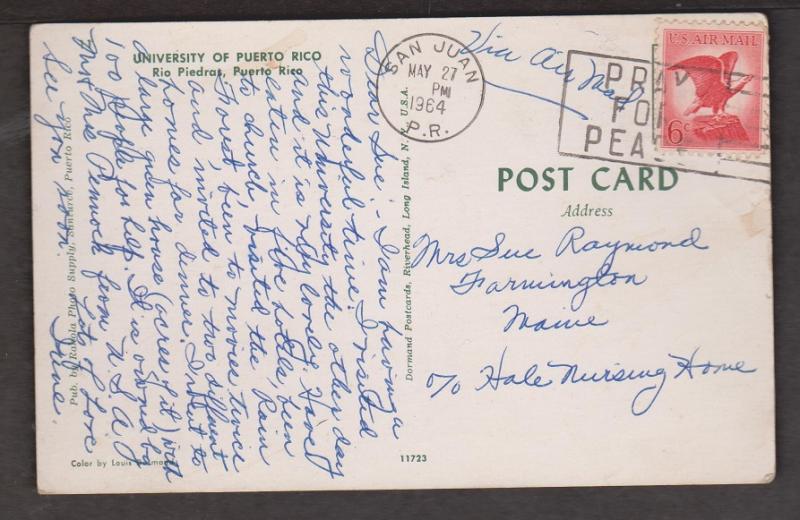 UNIVERSITY OF PUERTO RICO
Rio Piedras, Puerto Rico
Dear Sue:- I am having a
wonderful time. I visited
this University the other day
and it is very lovely. Have
eaten in five hotels, been
to church, visited the Rain
Forest, been to movies twice
and invited to two different
homes for dinner. I went to
a large green house (acres of it) with
100 people for help. It is owned by
Mr & Mrs Pennock from U.S.A.
See you soon. Lots of Love
June.
Pub. by Rahola Photo Supply, Santurce, Puerto Rico
Color by Louis
Dormand Postcards, Riverhead, Long Island, N. Y., U.S.A.
11723
SAN JUAN
MAY 27
PM
1964
P.R.
Via Air Mail
PRAY
FOR
PEACE
U.S. AIR MAIL
6c
POST CARD
Address
Mrs Sue Raymond
Farmington
Maine
c/o Hale Nursing Home